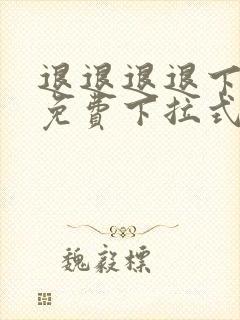 退退退退下
免费下拉式
魏毅標